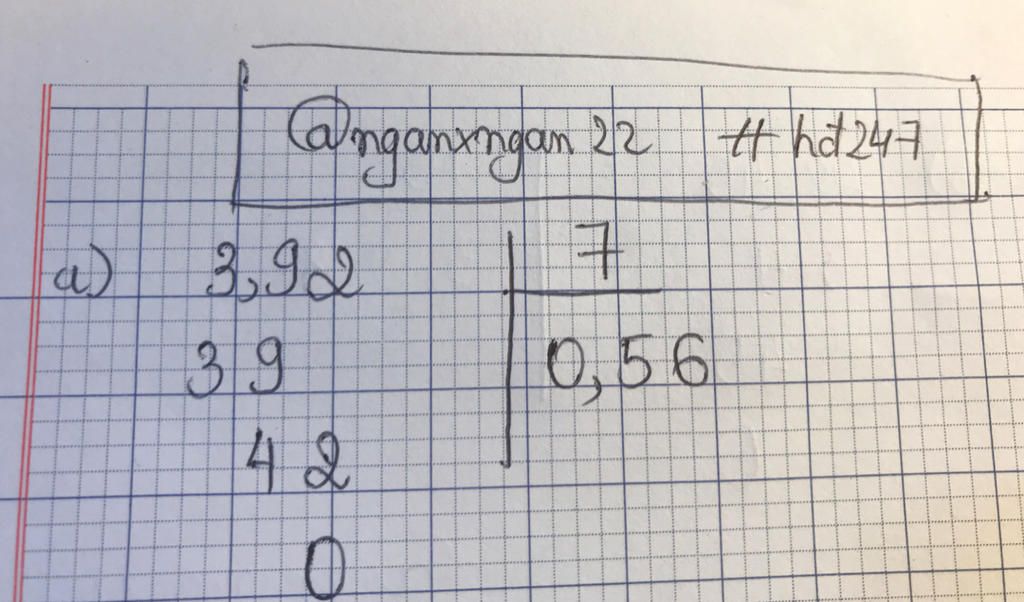 @nganxngan22 # hd247
a) 3,92 7
39 0,56
42
0